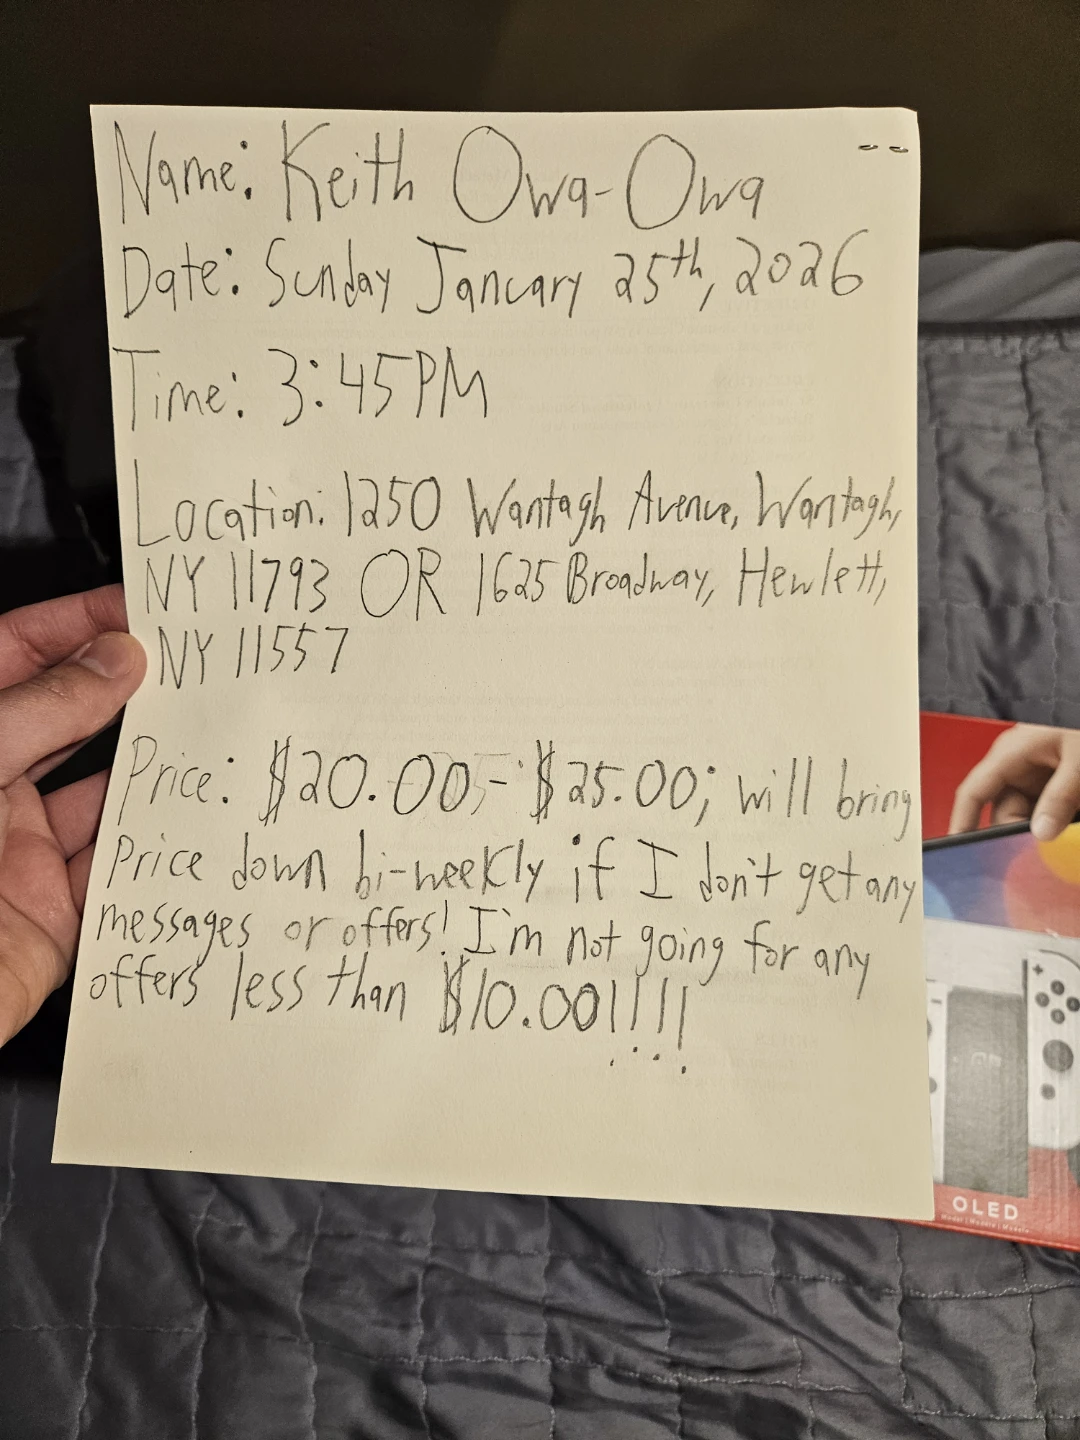 Name: Keith Owa-Owa
Date: Sunday January 25th, 2026
Time: 3:45PM
Location: 1250 Wantagh Avenue, Wantagh,
NY 11793 OR 1625 Broadway, Hewlett,
NY 11557
Price: $20.00 - $25.00; will bring
Price down bi-weekly if I don't get any
messages or offers! I'm not going for any
offers less than $10.00!!!!
OLED